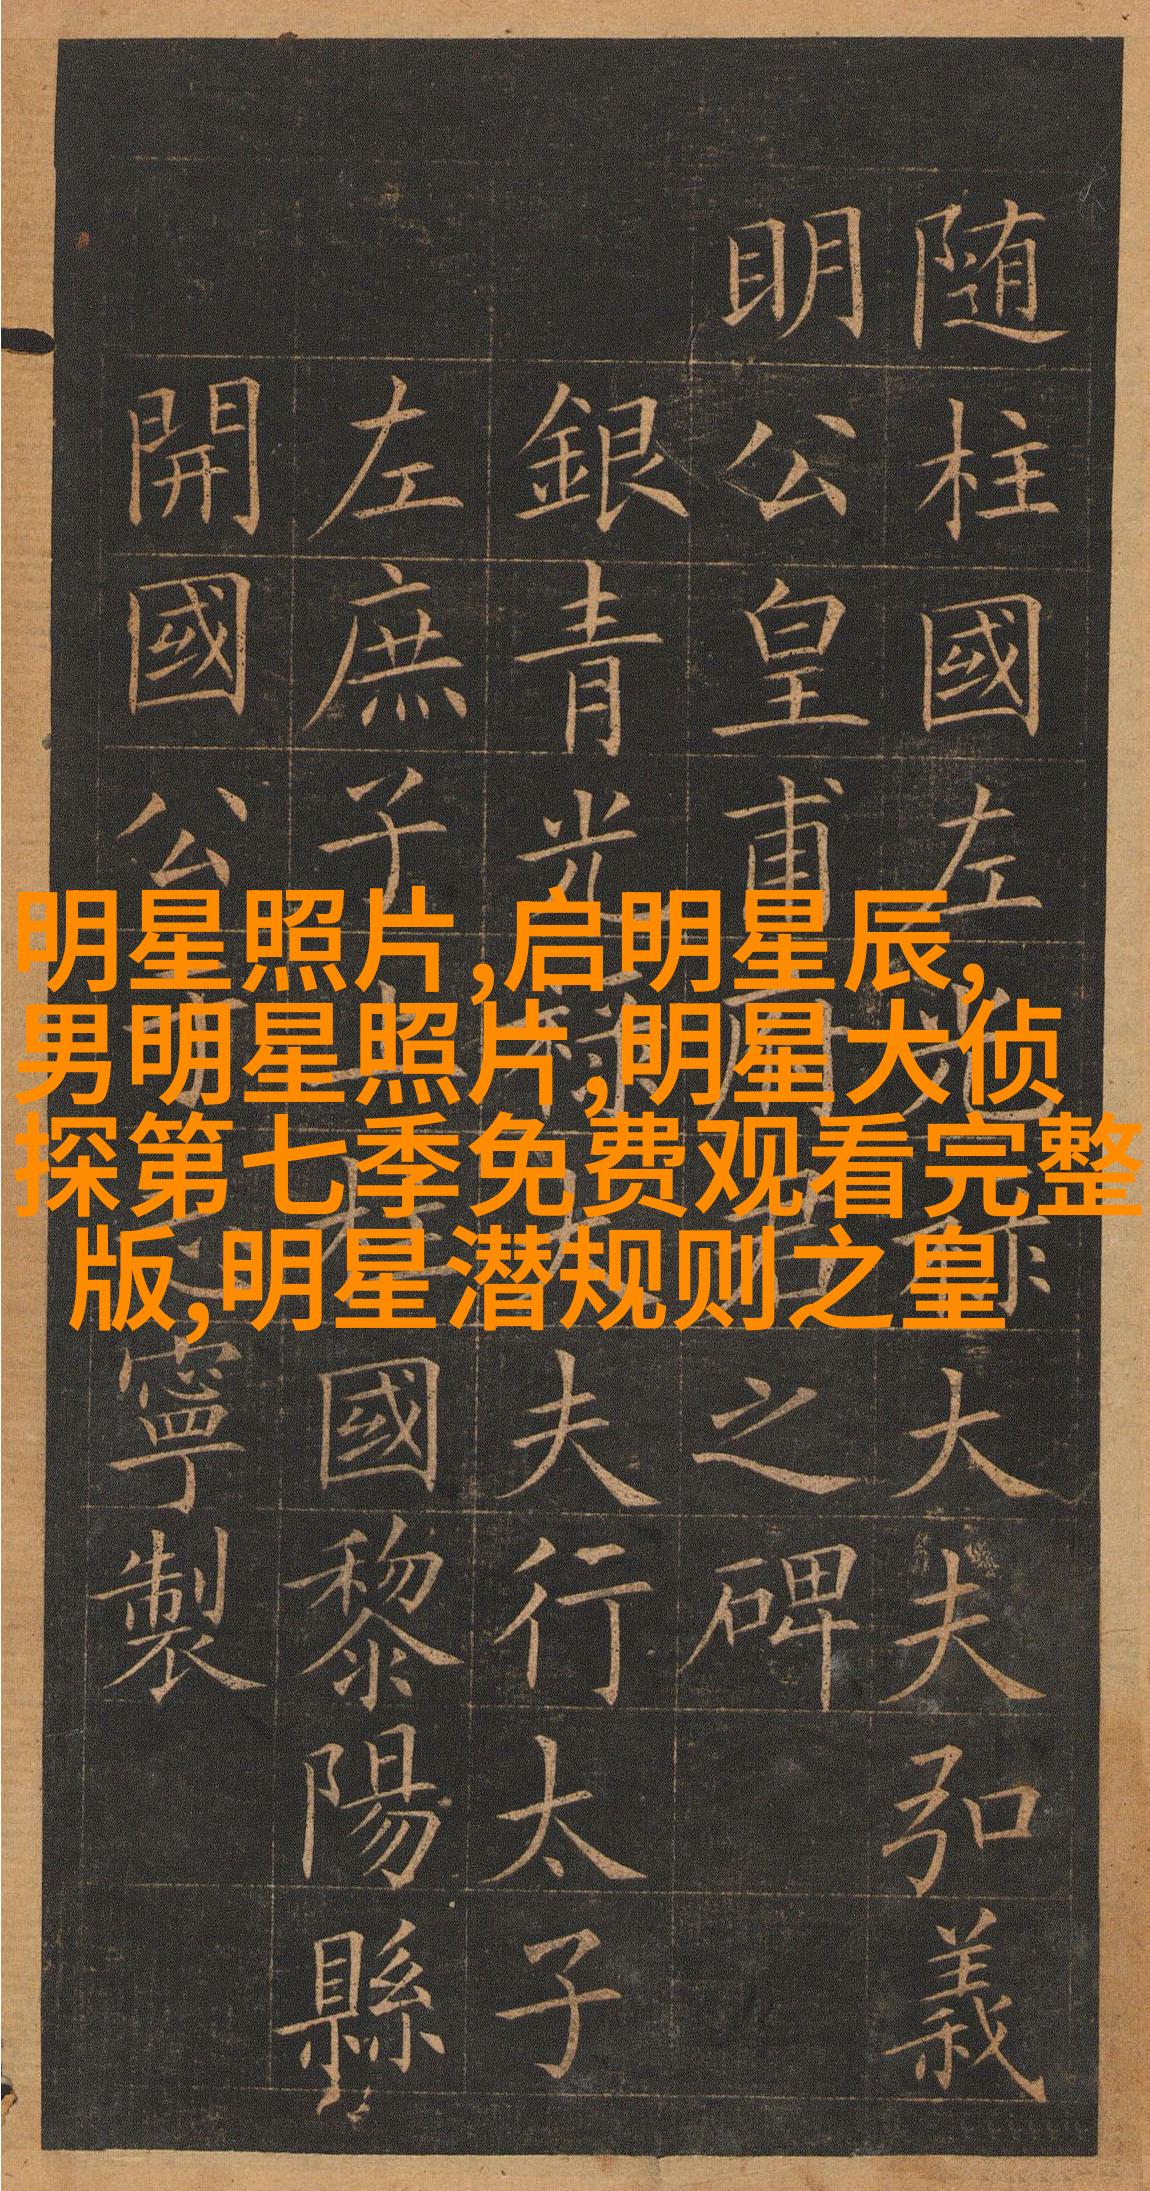 随柱國左光禄大夫弘義
明公皇甫府君之碑
銀青光禄大夫行太子
左庶子上柱國黎陽縣
開國公于志寧製
明星照片,启明星辰,
男明星照片,明星大侦
探第七季免费观看完整
版,明星潜规则之皇